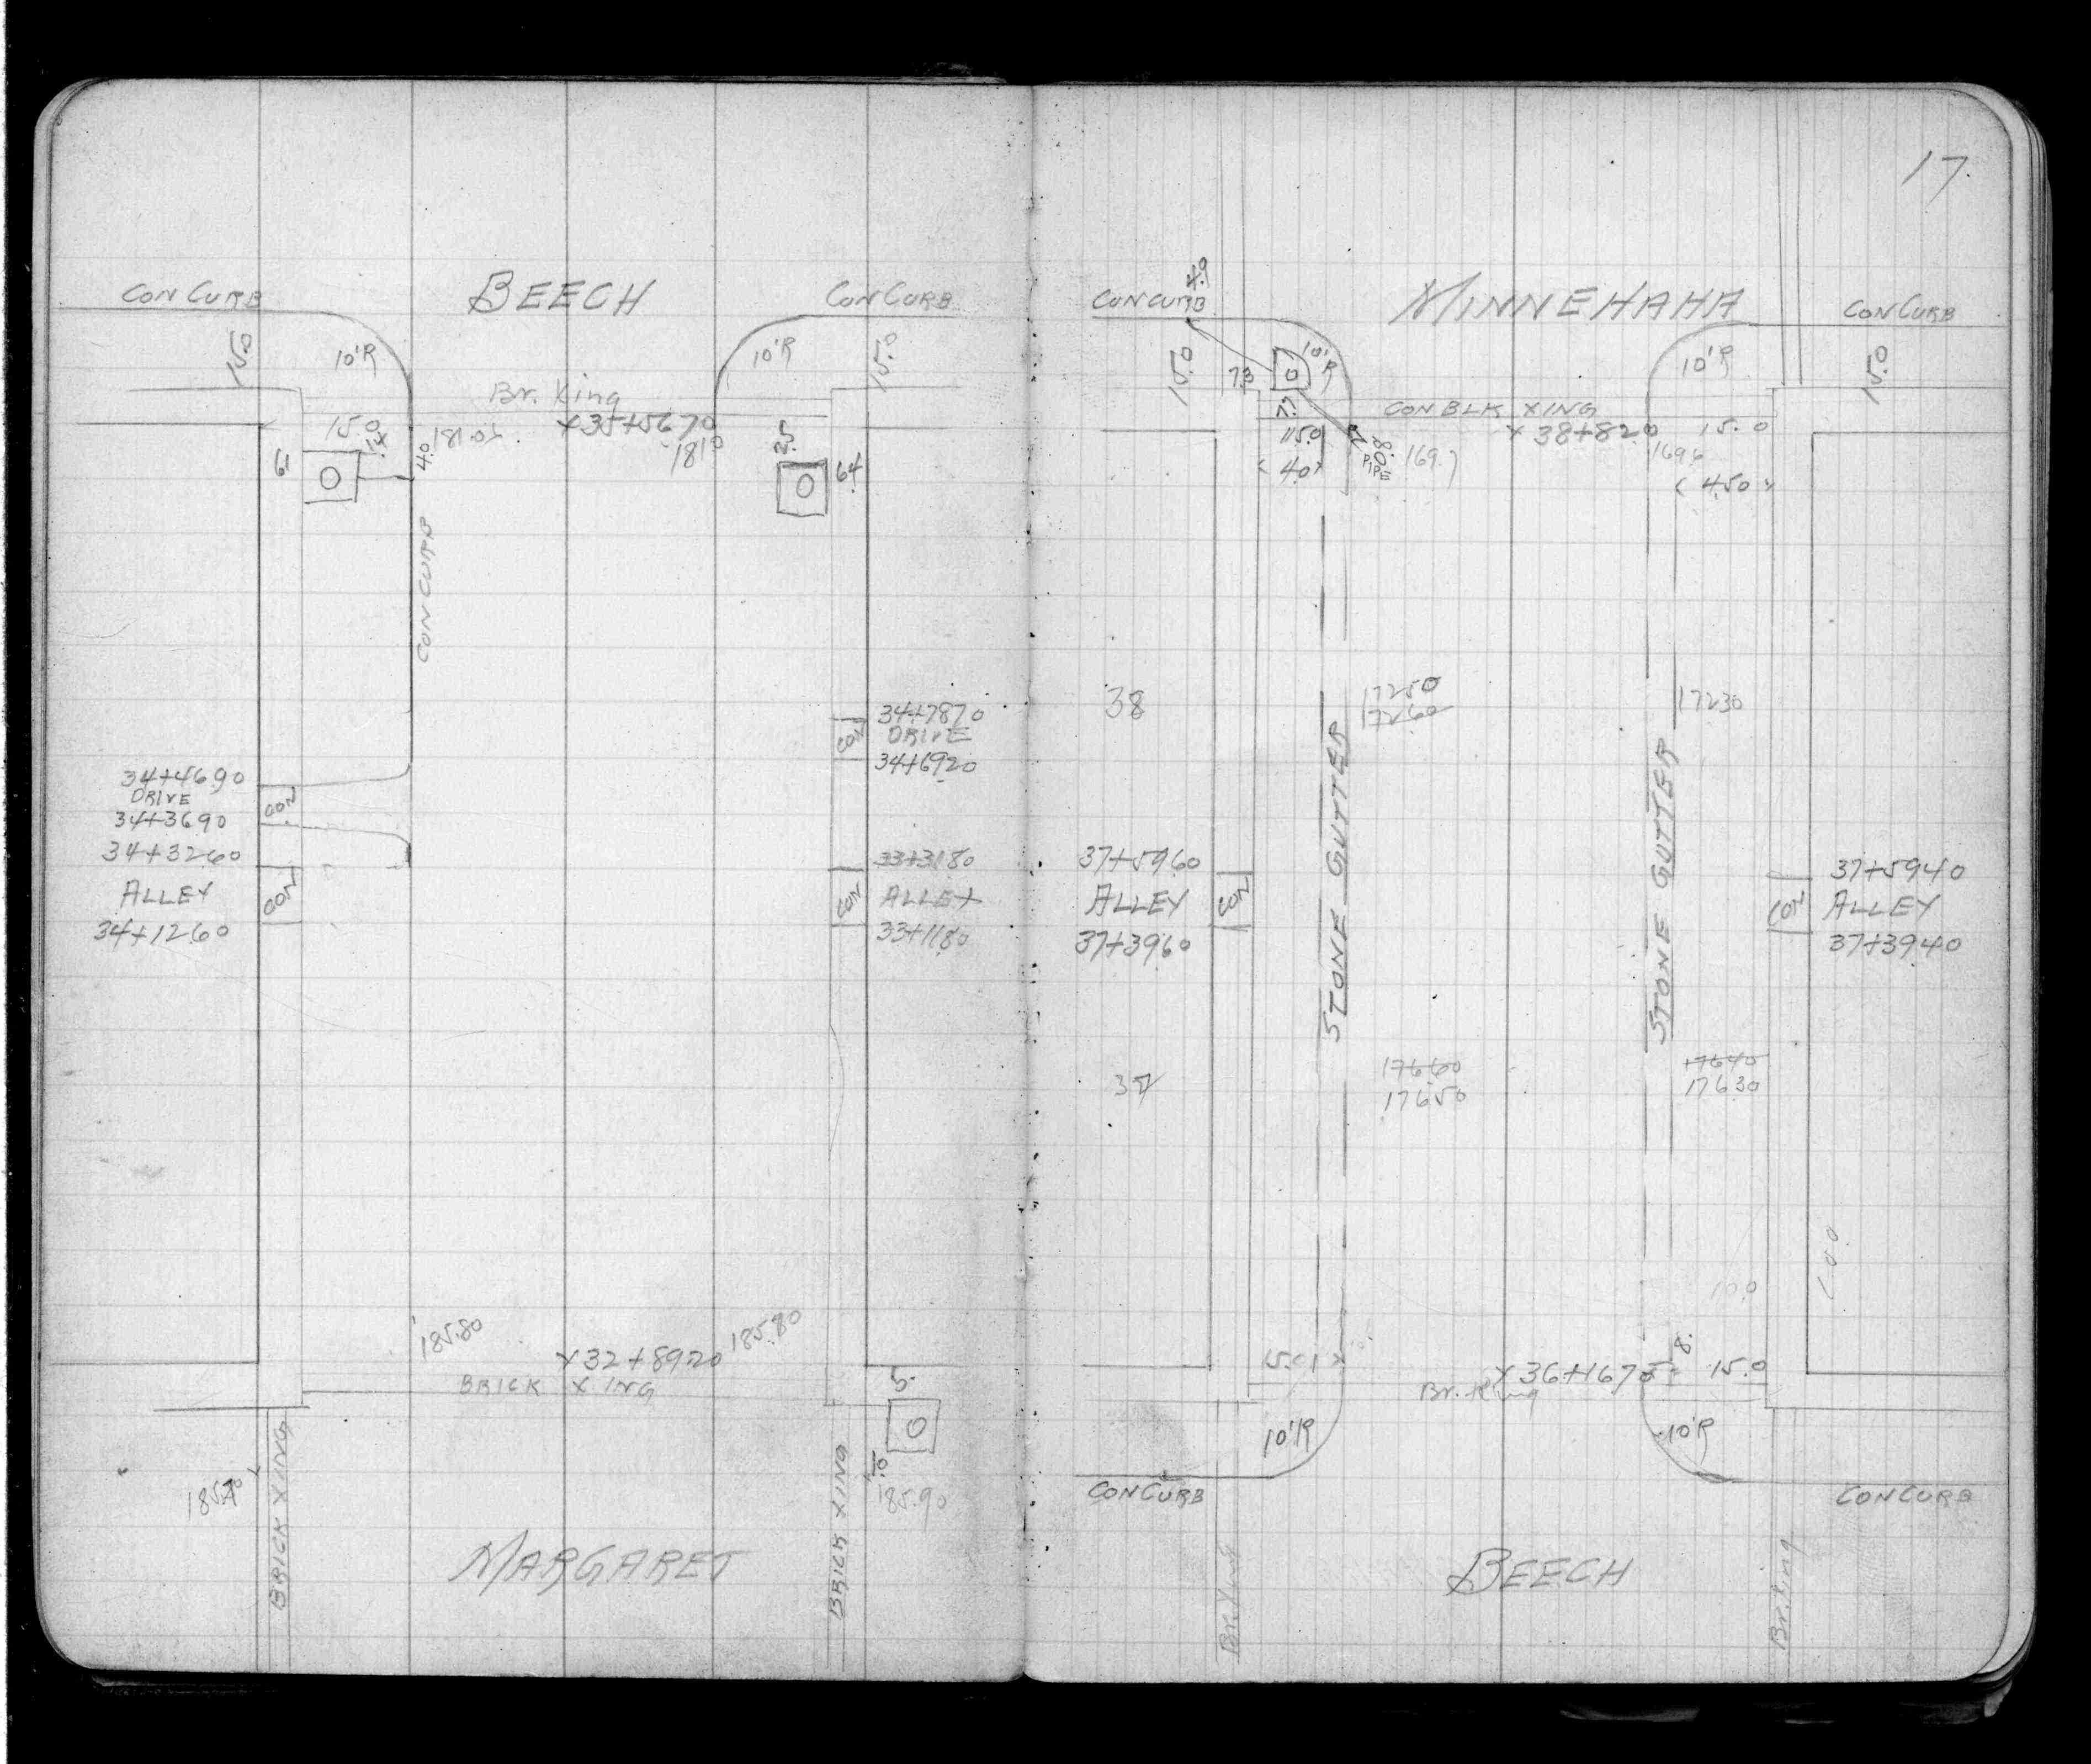 CON CURB
BEECH
CON CURB
15.0
10'R
10'R
15.0
Br. Xing
X 35+56 70
15.0
14
4.0
181.05
181.0
2.5
6.
64
CON CURB
34+78 70
DRIVE
34+69 20
CON
34+46.90
DRIVE
34+36 90
CON
34+32 60
ALLEY
34+12 60
CON
33+31 80
ALLEY
33+11 80
CON
185.80
X 32+89 20
185.80
BRICK XING
5.
BRICK XING
BRICK XING
185.90
MARGARET
17.
4.9
CON CURB
MINNEHAHA
CON CURB
15.0
7.3
10'R
10'R
15.0
7.7
CON BLK XING
X 38+82 0
15.0
15.0
4.0
PIPE
169.7
169 6
4.50
38
172 50
172 60
172 30
STONE GUTTER
STONE GUTTER
37+59 60
ALLEY
37+39 60
CON
37+59 40
ALLEY
37+39 40
CON
37
176 60
176 50
176 40
176 30
10.0
8.
15.0
X 36+16 75
15.0
Br. Xing
10'R
10'R
CON CURB
CON CURB
BEECH
Br. Xing
Br. Xing